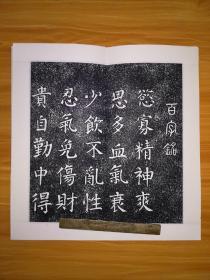 百字銘
慾寡精神爽
思多血氣衰
少飲不亂性
忍氣免傷財
貴自勤中得